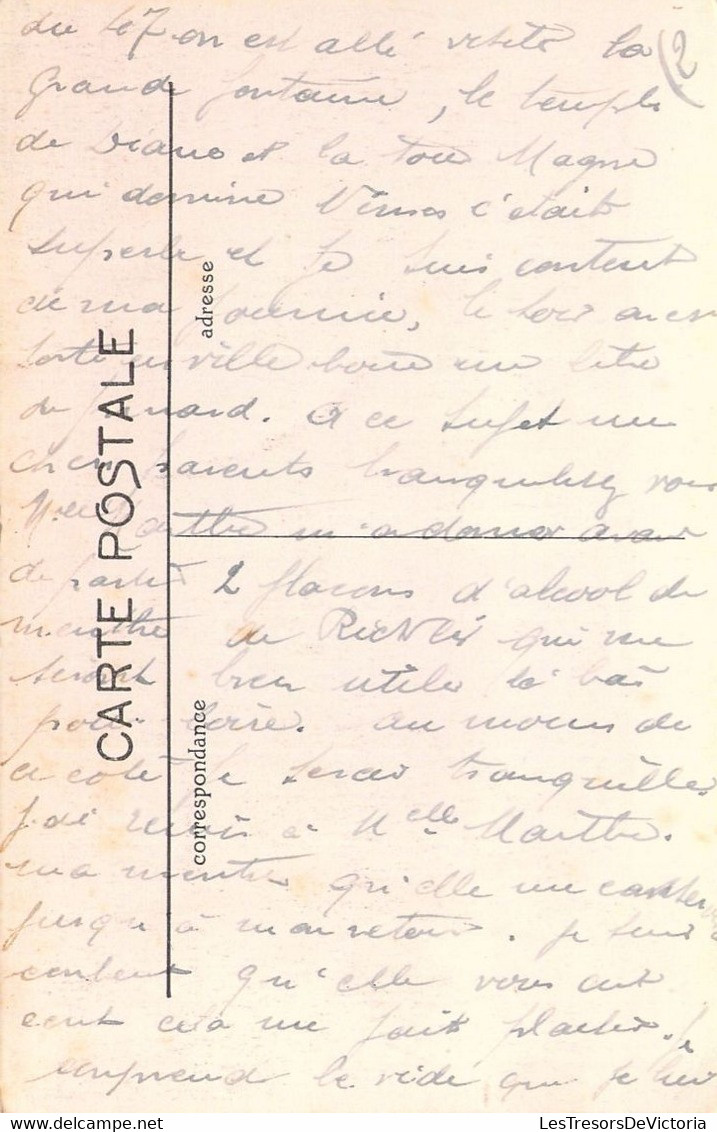 du 47 on est allé visité la
2
grande fontaine, le temple
de Diane et la tour Magne
qui domine Nimes c'était
superbe et je suis content
de ma journée, le soir on est
sorti en ville boire un litre
de pinard. A ce sujet mes
chers parents tranquilisez vous
Melle Marthe m'a donner avant
de partir 2 flacons d'alcool de
menthe de Ricklès qui me
seront bien utile là bas
pour boire. au moins de
ce coté je serais tranquille
j'ai remis à Melle Marthe
ma montre qu'elle me conserve
jusqu'à mon retour. Je suis
content qu'elle vous ait
écrit cela me fait plaisir. Je
comprend le vide que je
CARTE POSTALE
adresse
correspondance
www.delcampe.net
LesTresorsDeVictoria